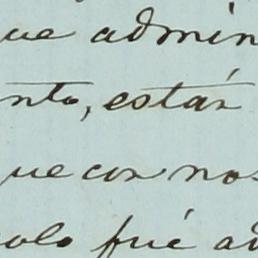 ue admin
nto, están
que con nos
olo fué ad